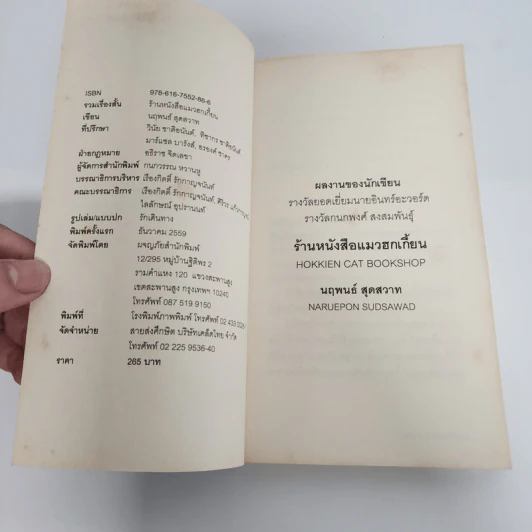 ISBN 978-616-7552-86-6
รวมเรื่องสั้น ร้านหนังสือแมวฮกเกี้ยน
เขียน นฤพนธ์ สุดสวาท
ที่ปรึกษา วินัย ชาติอนันต์, ทิชากร ชาติอนันต์
มาร์แชล บารังส์,
ฝ่ายกฎหมาย อธิราช จิตเลขา
ผู้จัดการสำนักพิมพ์ กนกวรรณ หวานหู
บรรณาธิการบริหาร เรืองกิตติ์ รักกาญจนันท์
คณะบรรณาธิการ เรืองกิตติ์ รักกาญจนันท์,
ไลลักษณ์ อุปรานนท์
รูปเล่ม/แบบปก รักเดินทาง
พิมพ์ครั้งแรก ธันวาคม 2559
จัดพิมพ์โดย ผจญภัยสำนักพิมพ์
12/295 หมู่บ้านฐิติพร 2
รามคำแหง 120 แขวงสะพานสูง
เขตสะพานสูง กรุงเทพฯ 10240
โทรศัพท์ 087 519 9150
พิมพ์ที่ โรงพิมพ์ภาพพิมพ์ โทรศัพท์ 02 433
จัดจำหน่าย สายส่งศึกษิต บริษัทเคล็ดไทย จำกัด
โทรศัพท์ 02 225 9536-40
ราคา 265 บาท
ผลงานของนักเขียน
รางวัลยอดเยี่ยมนายอินทร์อะวอร์ด
รางวัลกนกพงศ์ สงสมพันธุ์
ร้านหนังสือแมวฮกเกี้ยน
HOKKIEN CAT BOOKSHOP
นฤพนธ์ สุดสวาท
NARUEPON SUDSAWAD